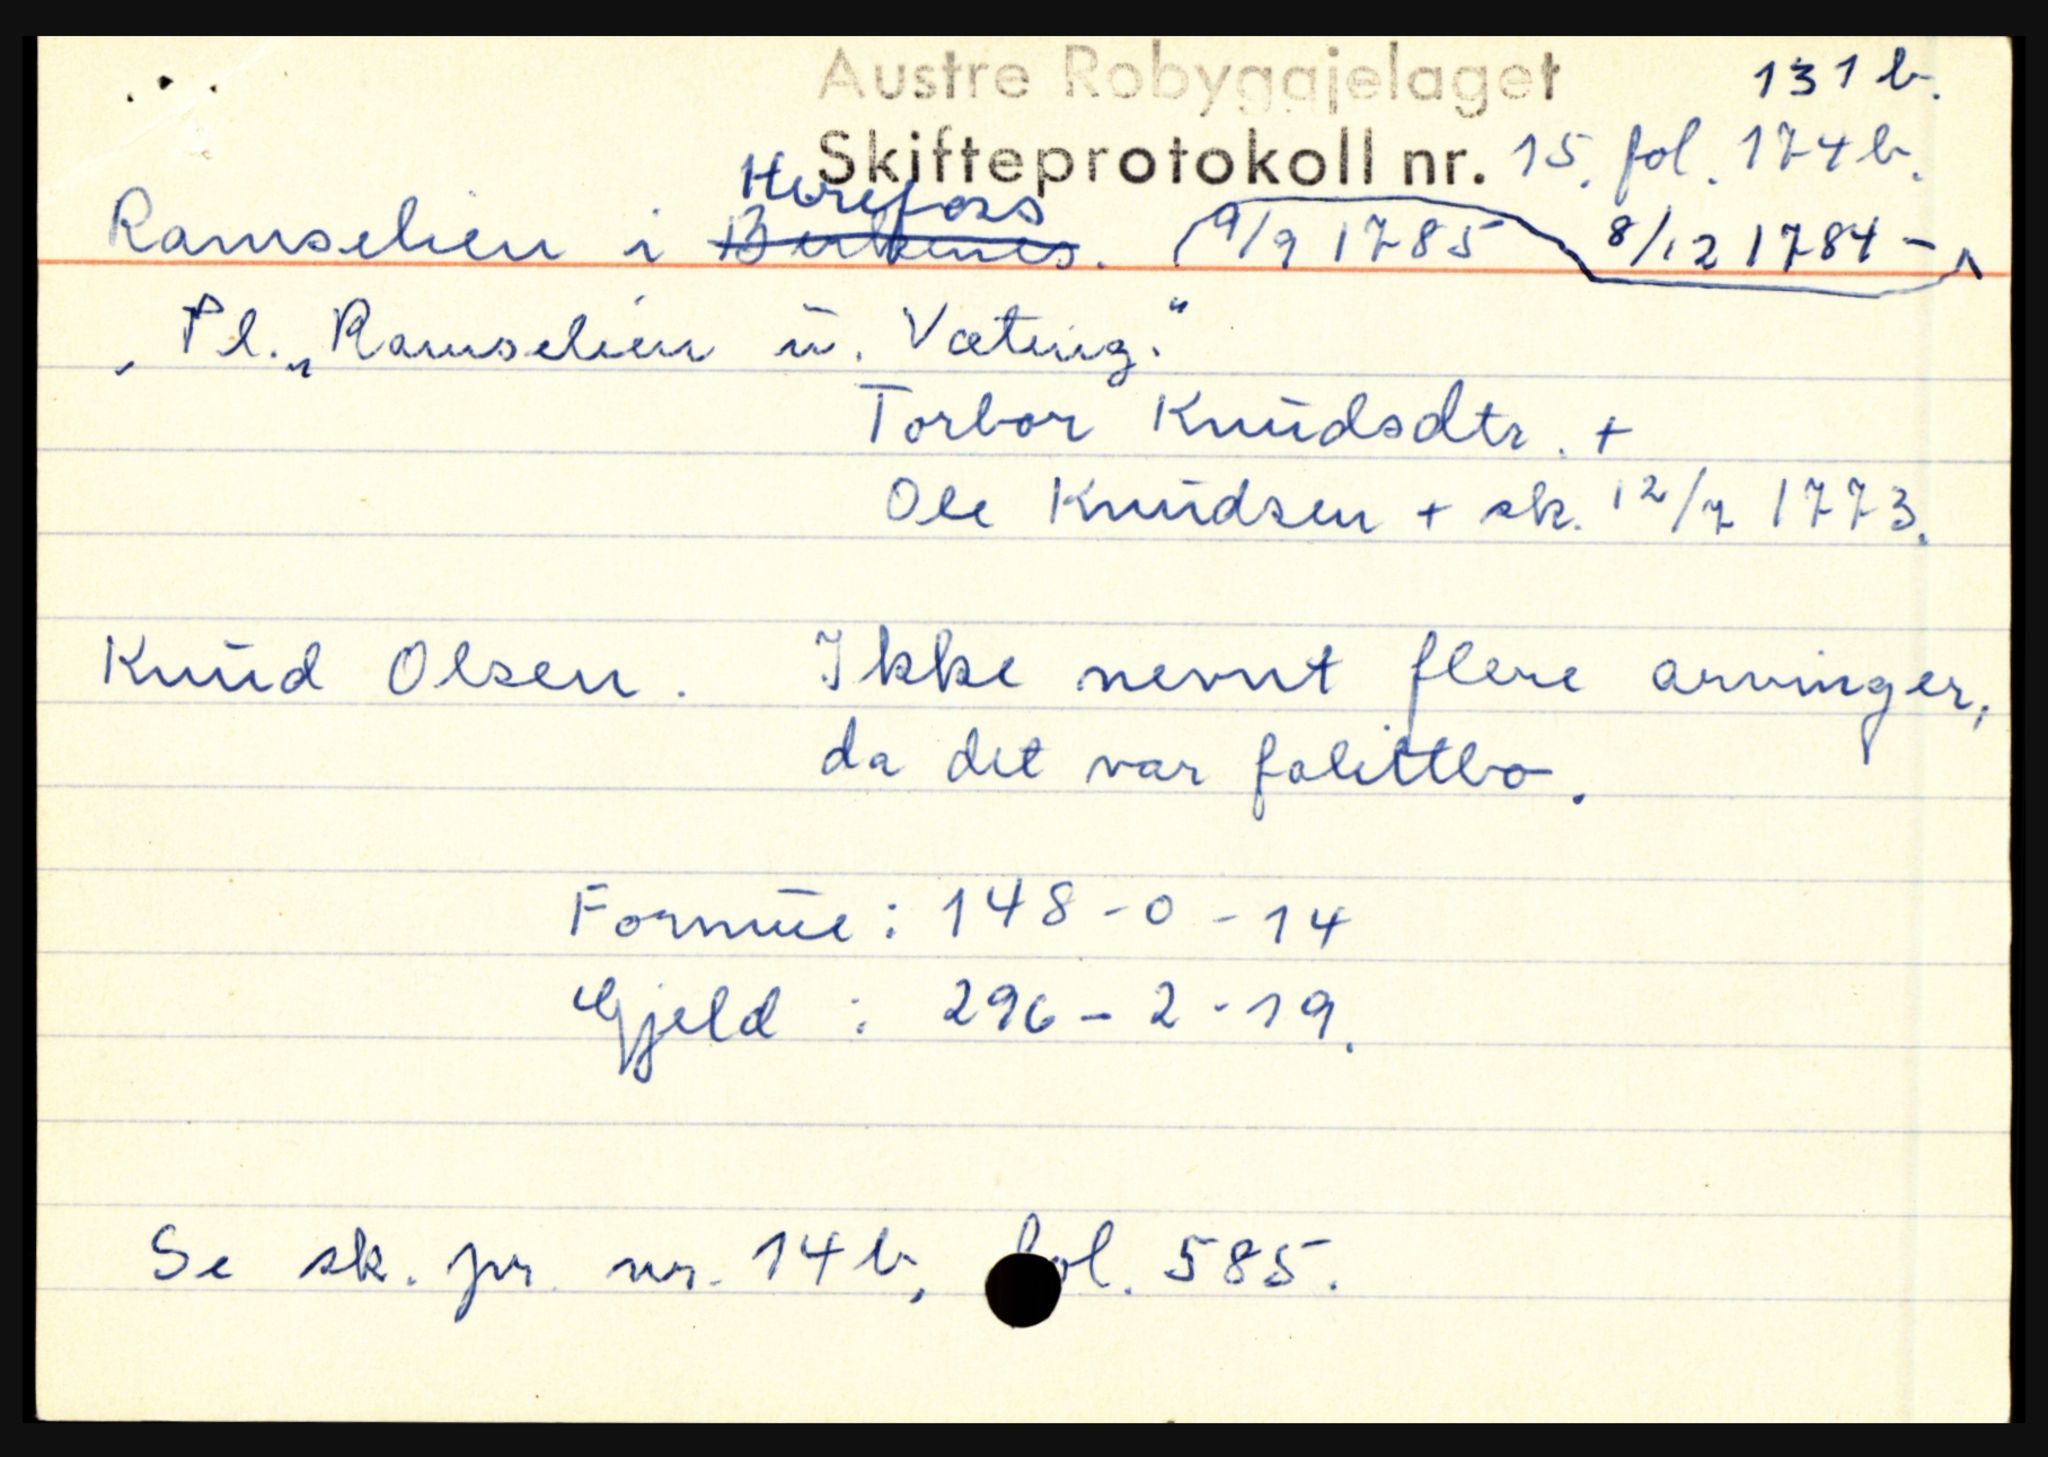 Austre Robyggjelaget 131 b.
Skifteprotokoll nr. 15. fol. 174 b.
Herefoss
Ramselien i Birkenes. 9/9 1785 8/12 1784 -
"Pl. „Ramselien u. Væting."
Torbor Knudsdtr. +
Ole Knudsen + sk. 12/7 1773.
Knud Olsen. Ikke nevnt flere arvinger,
da det var falittbo.
Formue: 148 - 0 - 14
Gjeld : 296 - 2 - 19.
Se sk. pr. nr. 14 b, fol. 585.